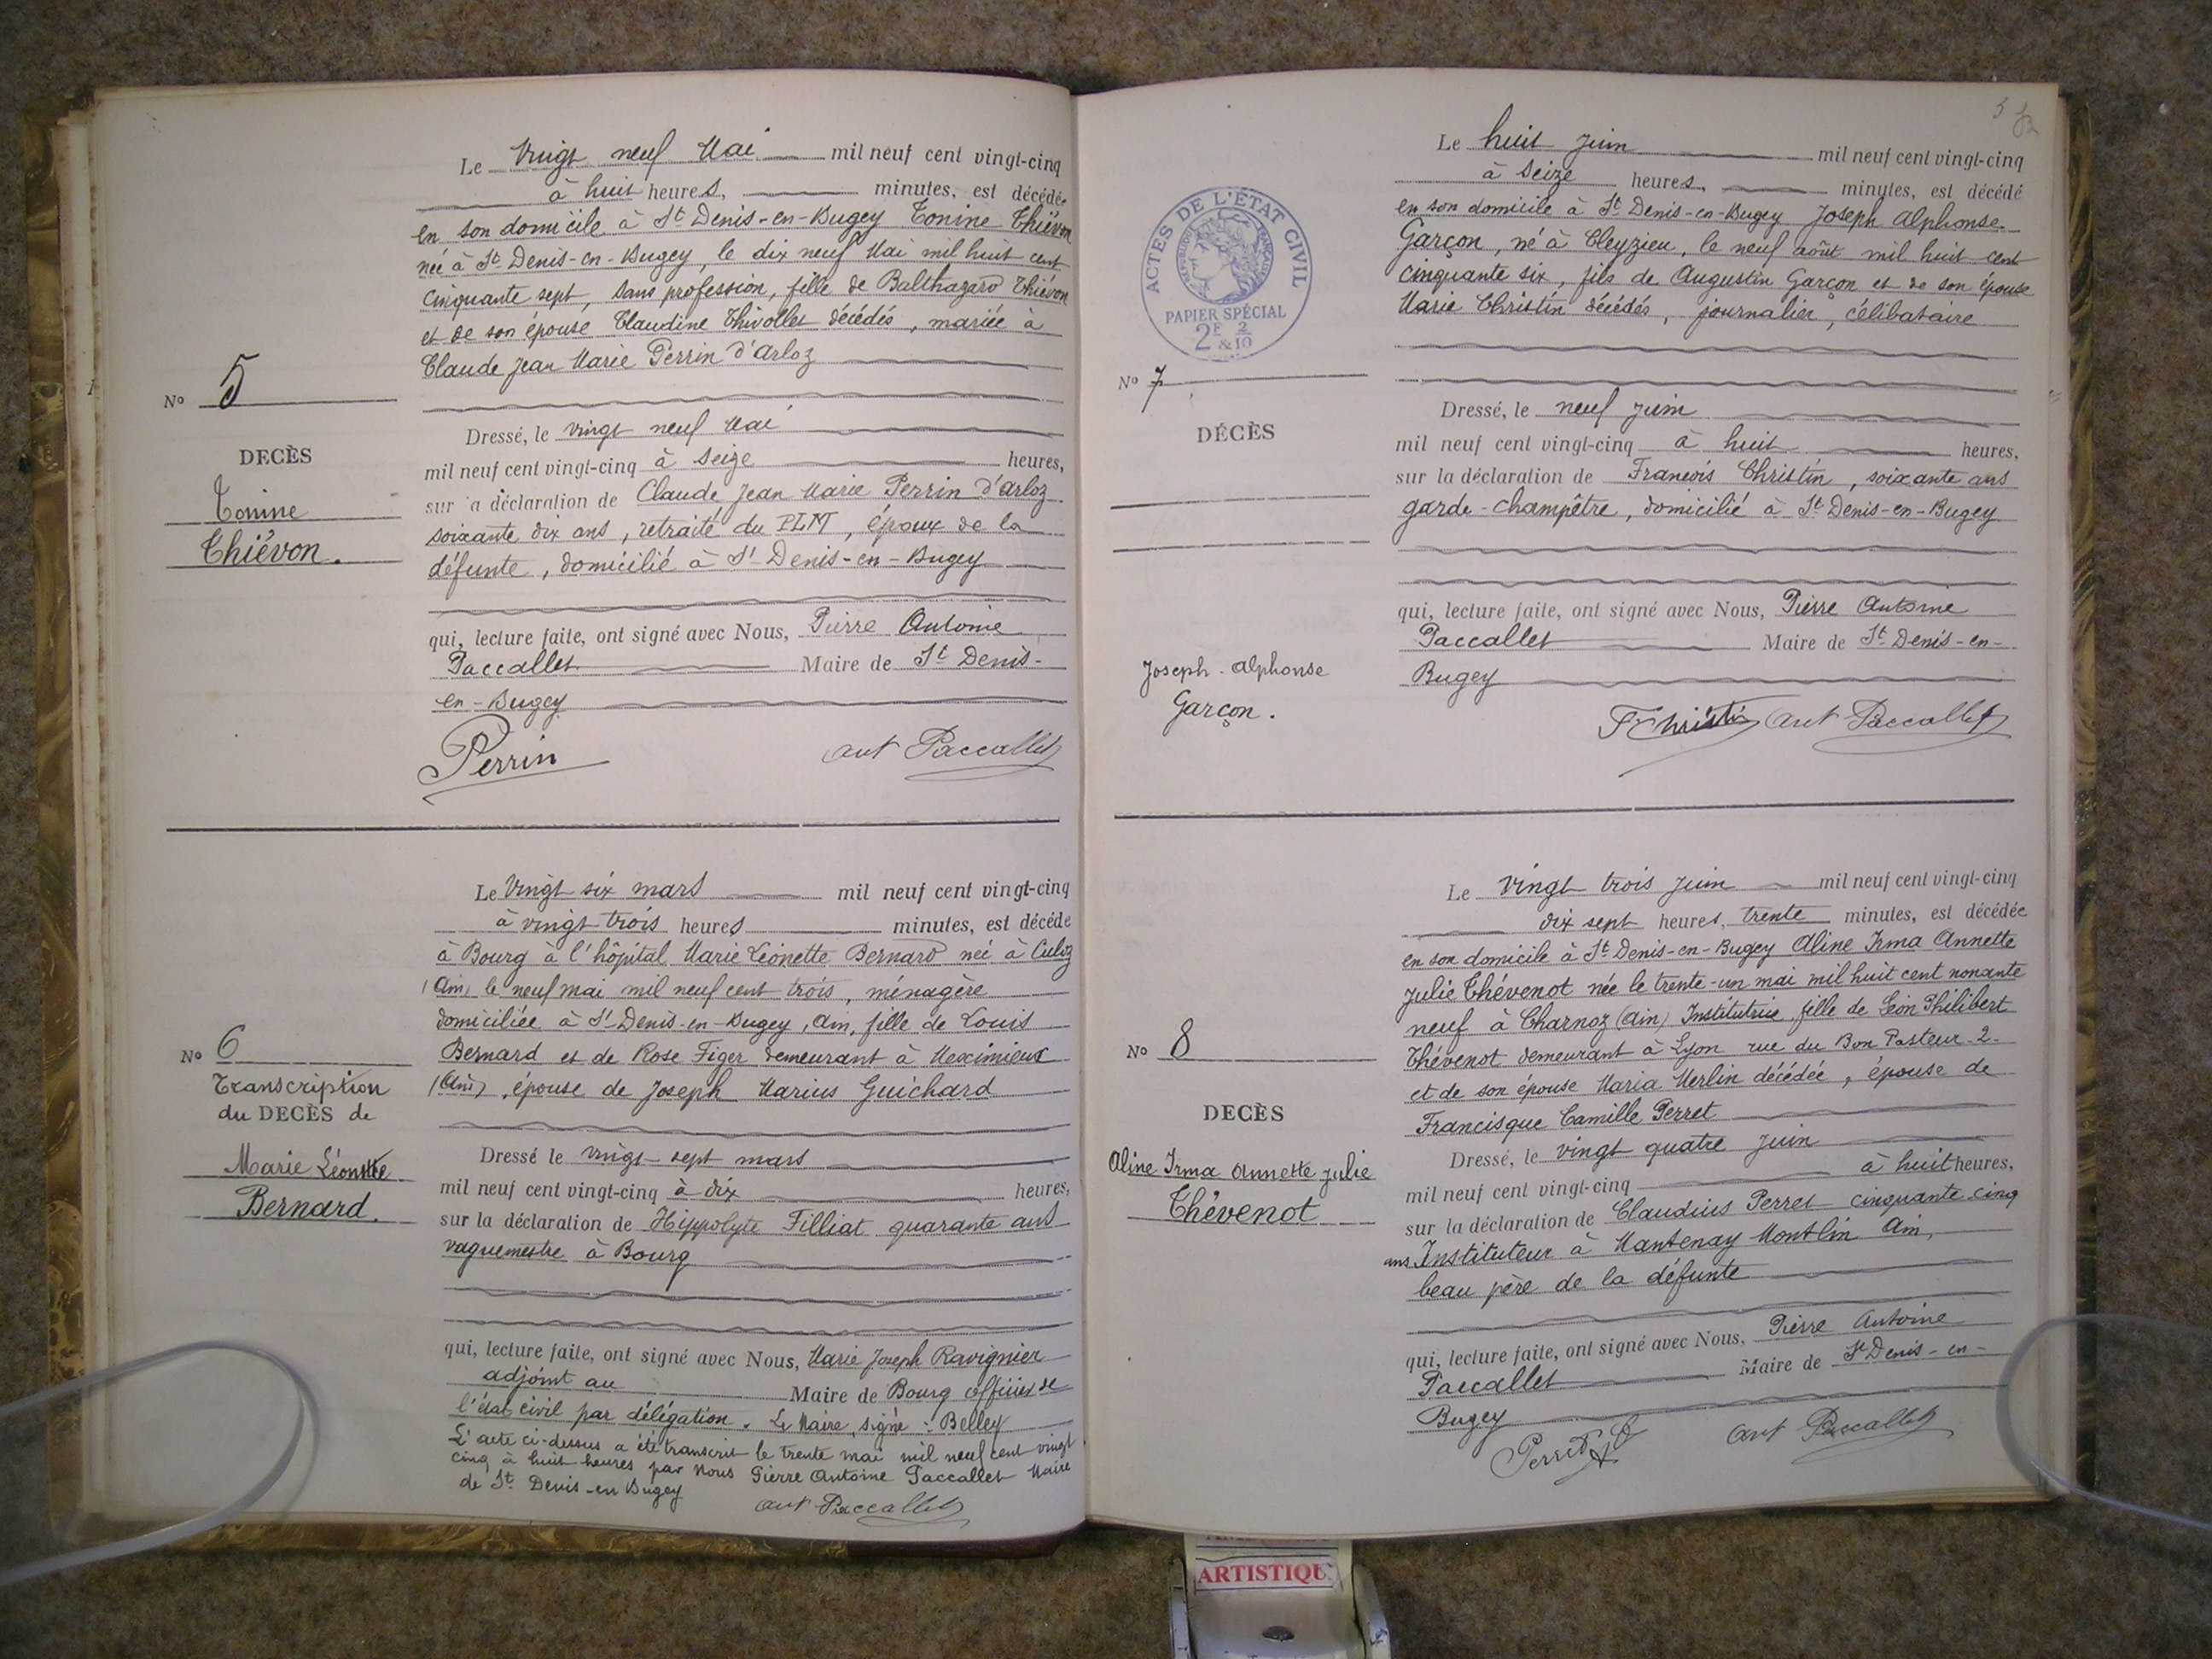 Le Vingt neuf Mai mil neuf cent vingt-cinq
à huit heures, minutes, est décédée
en son domicile à St Denis-en-Bugey Tonine Thiévon
née à St Denis-en-Bugey, le dix neuf Mai mil huit cent
cinquante sept, sans profession, fille de Balthazard Thiévon
et de son épouse Claudine Thivollet décédés, mariée à
Claude Jean Marie Perrin d'Arloz
No 5
DECÈS
Tonine
Thiévon.
Dressé, le vingt neuf Mai
mil neuf cent vingt-cinq à seize heures,
sur a déclaration de Claude Jean Marie Perrin d'Arloz
soixante dix ans, retraité du PLM, époux de la
défunte, domicilié à St Denis-en-Bugey
qui, lecture faite, ont signé avec Nous, Pierre Antoine
Paccallet Maire de St Denis-
en-Bugey
Perrin ant Paccallet
Le Vingt six mars mil neuf cent vingt-cinq
à vingt trois heures minutes, est décédé
à Bourg à l'hôpital Marie Léonette Bernard née à Culoz
(Ain) le neuf mai mil neuf cent trois, ménagère
domiciliée à St Denis-en-Bugey, Ain, fille de Louis
Bernard et de Rose Figer demeurant à Meximieux
(Ain), épouse de Joseph Marius Guichard
No 6
Transcription
du DECÈS de
Marie Léonette
Bernard.
Dressé le vingt-sept mars
mil neuf cent vingt-cinq à dix heures,
sur la déclaration de Hippolyte Filliat quarante ans
vaguemestre à Bourg
qui, lecture faite, ont signé avec Nous, Marie Joseph Ravignier
adjoint au Maire de Bourg officier de
l'état civil par délégation. Le Maire, signé : Belley
L'acte ci-dessus a été transcrit le trente mai mil neuf cent vingt
cinq à huit heures par Nous Pierre Antoine Paccallet Maire
de St Denis-en Bugey
ant Paccallet
Le huit Juin mil neuf cent vingt-cinq
à seize heures, minutes, est décédé
en son domicile à St Denis-en-Bugey Joseph Alphonse
Garçon, né à Cleyzieu, le neuf août mil huit cent
cinquante six, fils de Augustin Garçon et de son épouse
Marie Christin décédés, journalier, célibataire
ACTES DE L'ÉTAT CIVIL
PAPIER SPÉCIAL
2F 2/10
&
No 7
DÉCÈS
Joseph-Alphonse
Garçon.
Dressé, le neuf Juin
mil neuf cent vingt-cinq à huit heures,
sur la déclaration de Francois Christin, soixante ans
garde-champêtre, domicilié à St Denis-en-Bugey
qui, lecture faite, ont signé avec Nous, Pierre Antoine
Paccallet Maire de St Denis-en-
Bugey
F Christin ant Paccallet
Le vingt trois Juin mil neuf cent vingt-cinq
dix sept heures, trente minutes, est décédée
en son domicile à St Denis-en-Bugey Aline Irma Annette
Julie Thévenot née le trente-un mai mil huit cent nonante
neuf à Charnoz (Ain) Institutrice, fille de Léon Philibert
Thévenot demeurant à Lyon rue du Bon Pasteur-2-
et de son épouse Maria Merlin décédée, épouse de
Francisque Camille Perret
No 8
DECÈS
Aline Irma Annette Julie
Thévenot
Dressé, le vingt quatre Juin
mil neuf cent vingt-cinq à huit heures,
sur la déclaration de Claudius Perret cinquante cinq
ans Instituteur à Mantenay Montlin Ain,
beau père de la défunte
qui, lecture faite, ont signé avec Nous, Pierre Antoine
Paccallet Maire de St Denis-en-
Bugey
Perret ant Paccallet
ARTISTIQU